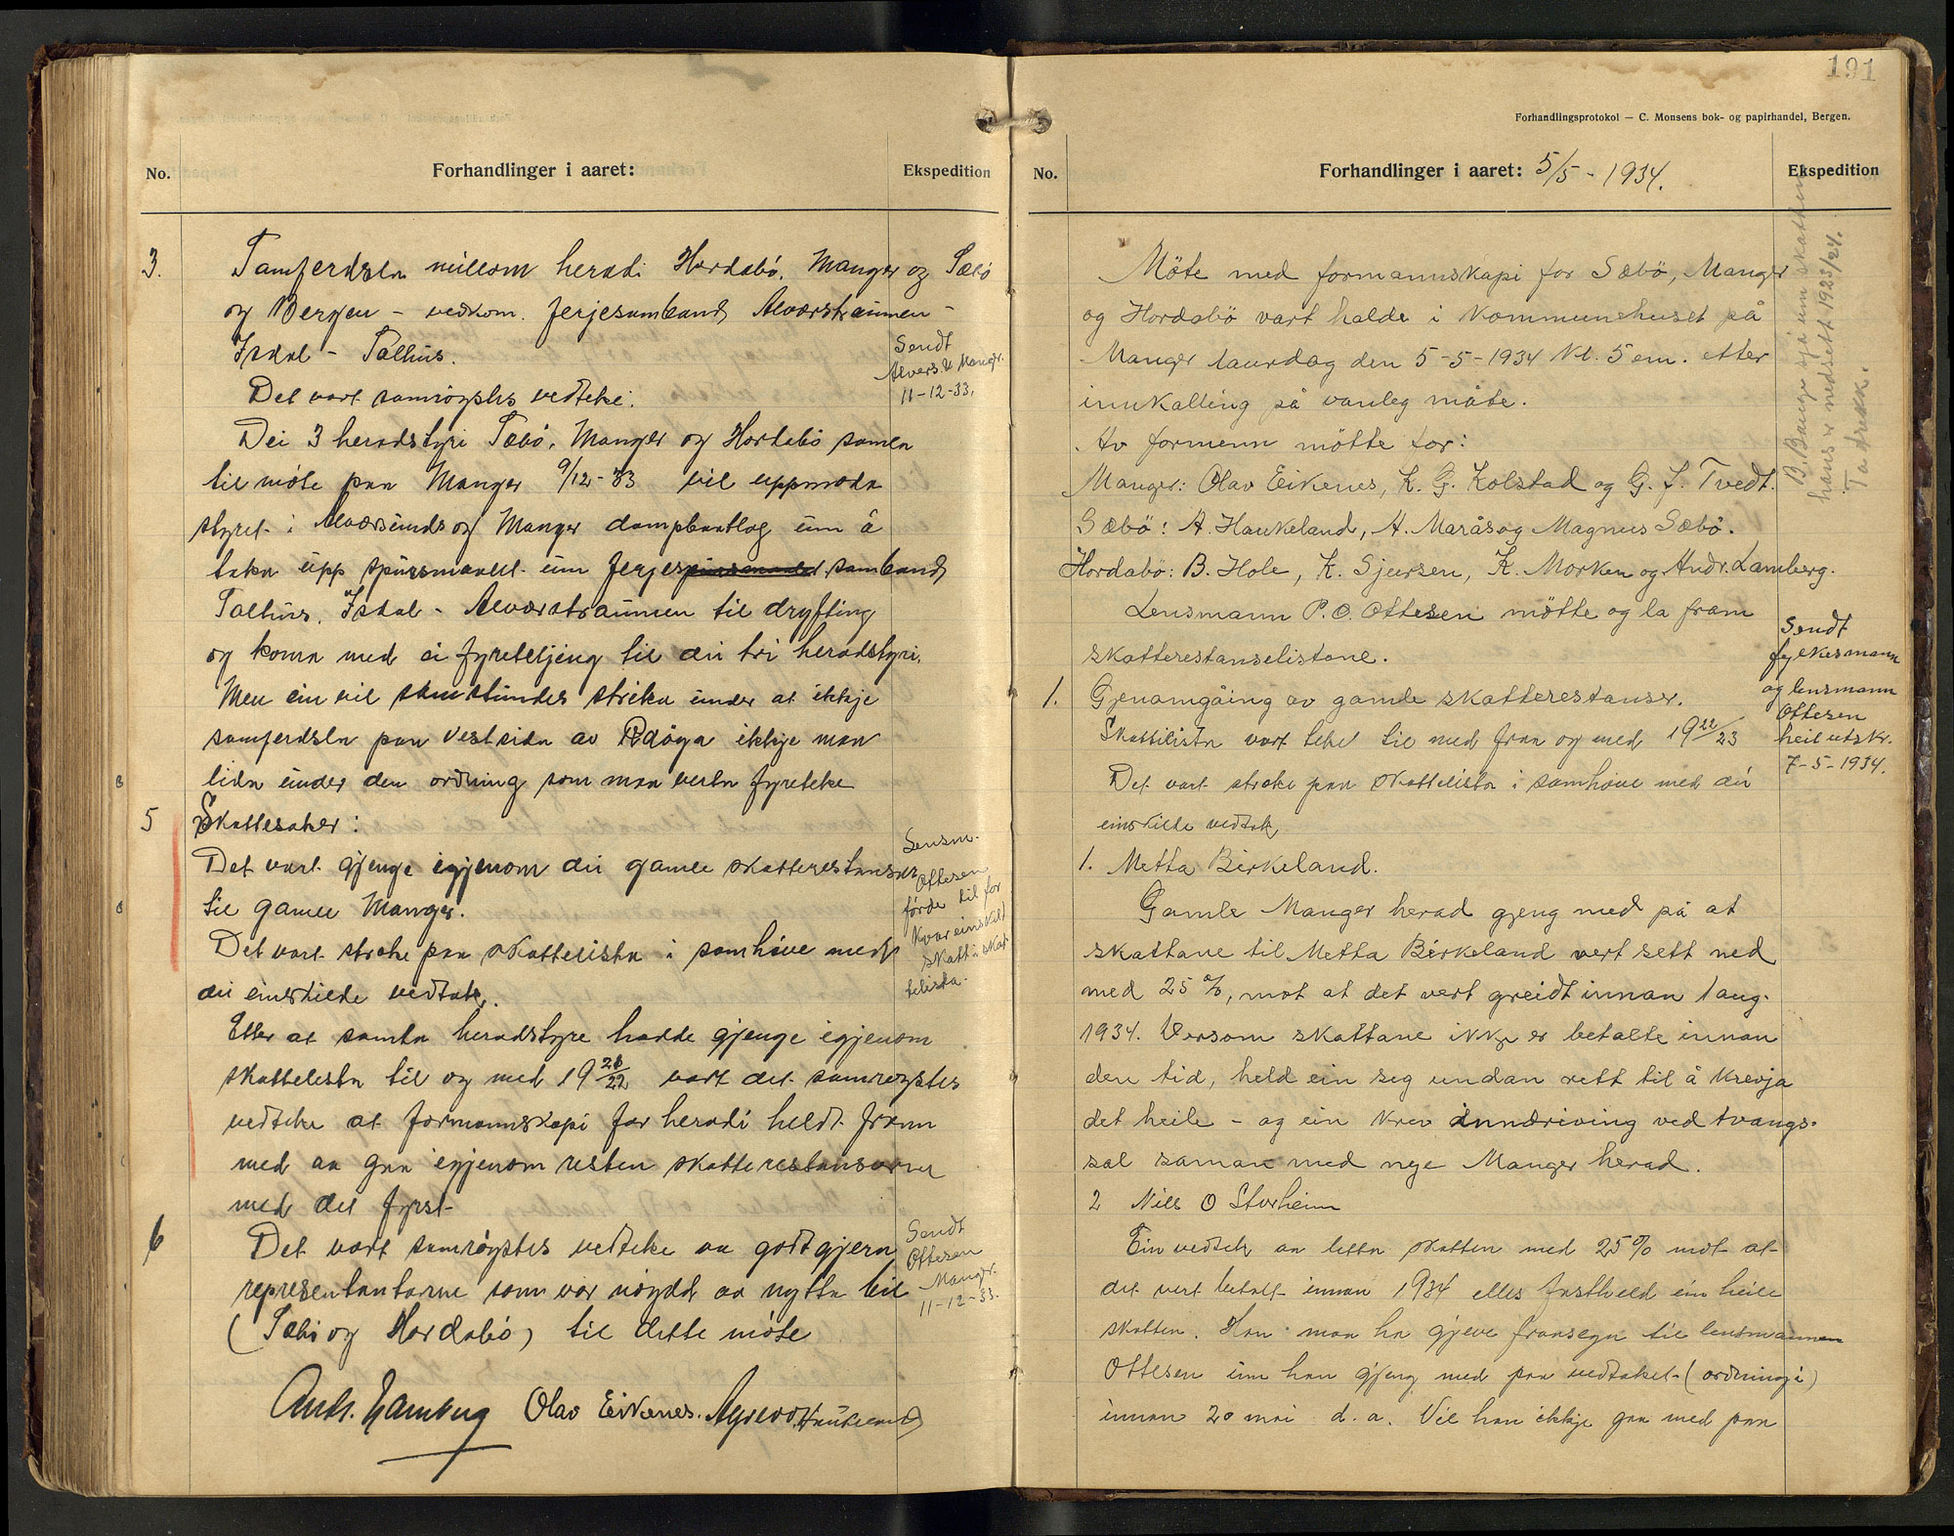 No.
Forhandlinger i aaret:
Ekspedition
3.
Samferdsla millom heradi Hordabö, Manger og Sæbö
og Bergen – vedkom. ferjesamband Alværstraumen –
Isdal – Salhus.
Sendt
Alvers & Manger.
11-12-33.
Det vart samröystes vedteke:
Dei 3 heradstyri Sæbö, Manger og Hordabö samla
til möte paa Manger 9/12-33 vil uppmoda
styret i Alværsunds og Manger dampbaatlag um å
taka upp spursmaalet um ferjesamband
Salhus, Isdal – Alværstraumen til dryfting
og koma med ei fyreteljing til dei tri heradstyri.
Men ein vil samstundes streka under at ikkje
samferdsla paa vestsida av Radöya ikkje maa
lida under den ordning som maa verta fyreteke
5
Skattesaker:
Det vart gjenge igjenom dei gamle skatterestansar
til gamle Manger.
Det vart stroke paa skattelista i samhöve med
dei einskilde vedtak.
Lensm.
Ottesen
förde til for
kvar einskild
skatt i skat
telista.
Etter at samla heradstyre hadde gjenge igjenom
skattelista til og med 19 21/22 vart det samröystes
vedteke at formannskapi for heradi heldt fram
med aa gaa igjenom resten skatterestansarne
med det fyrst
6
Det vart samröystes vedteke aa godtgjera
representantarne som var nöydd aa nytta bil
(Sæbö og Hordabö) til dette möte
Sendt
Ottesen
Manger.
11-12-33.
Andr. Lamberg Olav Eikenes. Haukeland
191
Forhandlingsprotokol — C. Monsens bok- og papirhandel, Bergen.
No.
Forhandlinger i aaret: 5/5 - 1934.
Ekspedition
B. Bauge sjå um skatten
hans er nedsett 1923/24.
Möte med formannskapi for Sæbö, Manger
og Hordabö vart halde i kommunehuset på
Manger laurdag den 5-5-1934 kl. 5 em. etter
innkalling på vanleg måte.
Av formenn mötte for:
Manger: Olav Eikenes, K. G. Kolstad og G. J. Tvedt.
Sæbö: A. Haukeland, A. Marås og Magnus Sæbö.
Hordabö: B. Hole, K. Sjursen, K. Morken og Andr. Lamberg.
Lensmann P. O. Ottesen mötte og la fram
skatterestanselistone.
1.
Gjenomgåing av gamle skatterestanser.
Skattelista vart teke til med fraa og med 19 22/23
Det vart stroke paa skattelista i samhöve med dei
einskilde vedtak.
Sendt
fylkesmann
og lensmann
Ottesen
heil utskr.
7-5-1934.
1. Metta Birkeland.
Gamle Manger herad gjeng med på at
skattane til Metta Birkeland vert sett ned
med 25 %, mot at det vert greidt innan 1 aug.
1934. Dersom skattane ikkje er betalte innan
den tid, held ein seg undan rett til å krevja
det heile – og ein krev inndriving ved tvangs-
sal saman med nye Manger herad.
2 Nils O Storheim
Ein vedtek aa letta skatten med 25% mot at
det vert betalt innan 1934 elles fastheld ein heile
skatten. Han maa ha gjeve fraasegn til lensmannen
Ottesen um han gjeng med paa vedtaket (ordningi)
innan 20 mai d. a. Vil han ikkje gaa med paa